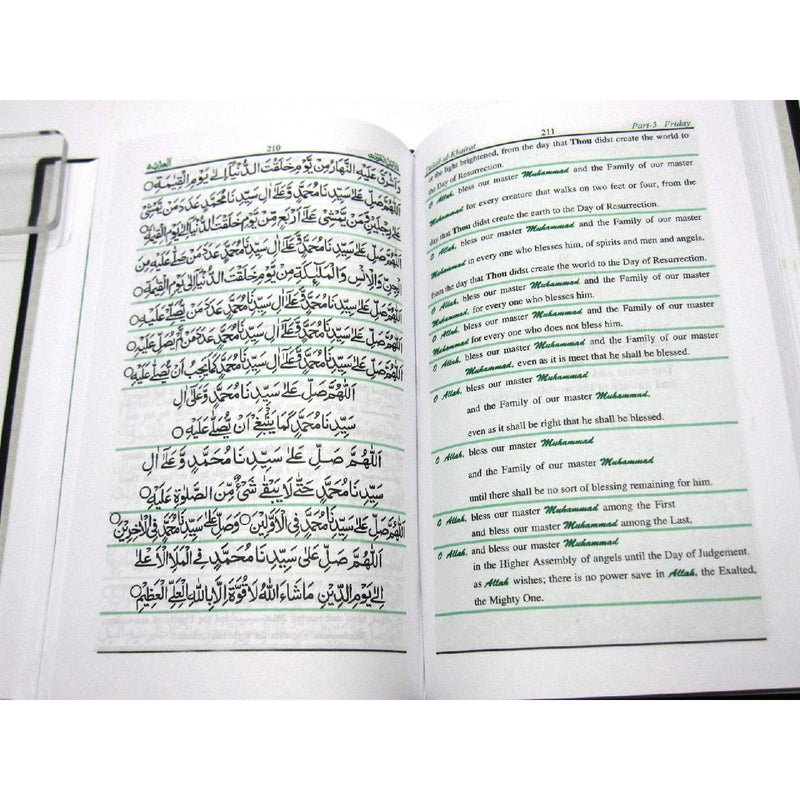 210
وَاَشْرَقَ عَلَيْهِ النَّهَارُ مِنْ يَوْمِ خَلَقْتَ الدُّنْيَآ اِلٰى يَوْمِ الْقِيٰمَةِ ○
اَللّٰهُمَّ صَلِّ عَلٰى سَيِّدِنَا مُحَمَّدٍ وَّعَلٰٓى اٰلِ سَيِّدِنَا مُحَمَّدٍ عَدَدَ مَنْ يَّمْشِيْ
عَلٰى رِجْلَيْنِ وَمَنْ يَّمْشِيْ عَلٰٓى اَرْبَعٍ مِنْ يَوْمِ خَلَقْتَ الدُّنْيَآ اِلٰى يَوْمِ الْقِيٰمَةِ ○
اَللّٰهُمَّ صَلِّ عَلٰى سَيِّدِنَا مُحَمَّدٍ وَّعَلٰٓى اٰلِ سَيِّدِنَا مُحَمَّدٍ عَدَدَ مَنْ صَلّٰى عَلَيْهِ مِنَ
الْجِنِّ وَالْاِنْسِ وَالْمَلٰٓئِكَةِ مِنْ يَوْمِ خَلَقْتَ الدُّنْيَآ اِلٰى يَوْمِ الْقِيٰمَةِ ○
اَللّٰهُمَّ صَلِّ عَلٰى سَيِّدِنَا مُحَمَّدٍ وَّعَلٰٓى اٰلِ سَيِّدِنَا مُحَمَّدٍ عَدَدَ مَنْ يُّصَلِّيْ عَلَيْهِ ○
اَللّٰهُمَّ صَلِّ عَلٰى سَيِّدِنَا مُحَمَّدٍ وَّعَلٰٓى اٰلِ سَيِّدِنَا مُحَمَّدٍ عَدَدَ مَنْ لَّمْ يُصَلِّ عَلَيْهِ ○
اَللّٰهُمَّ صَلِّ عَلٰى سَيِّدِنَا مُحَمَّدٍ وَّعَلٰٓى اٰلِ سَيِّدِنَا مُحَمَّدٍ كَمَا يَجِبُ اَنْ يُّصَلّٰى عَلَيْهِ ○
اَللّٰهُمَّ صَلِّ عَلٰى سَيِّدِنَا مُحَمَّدٍ وَّعَلٰٓى اٰلِ
سَيِّدِنَا مُحَمَّدٍ كَمَا يَنْۢبَغِيْ اَنْ يُّصَلّٰى عَلَيْهِ ○
اَللّٰهُمَّ صَلِّ عَلٰى سَيِّدِنَا مُحَمَّدٍ وَّعَلٰٓى اٰلِ
سَيِّدِنَا مُحَمَّدٍ حَتّٰى لَا يَبْقٰى شَيْءٌ مِّنَ الصَّلٰوةِ عَلَيْهِ ○
اَللّٰهُمَّ صَلِّ عَلٰى سَيِّدِنَا مُحَمَّدٍ فِى الْاَوَّلِيْنَ ○ وَصَلِّ عَلٰى سَيِّدِنَا مُحَمَّدٍ فِى الْاٰخِرِيْنَ ○
اَللّٰهُمَّ صَلِّ عَلٰى سَيِّدِنَا مُحَمَّدٍ فِى الْمَلَاِ الْاَعْلٰٓى
اِلٰى يَوْمِ الدِّيْنِ مَاشَآءَ اللّٰهُ لَا قُوَّةَ اِلَّا بِاللّٰهِ الْعَلِيِّ الْعَظِيْمِ ○
Dalail-al-Khairat 211 Part-5 Friday
of the light brightened, from the day that Thou didst create the world to
the Day of Resurrection.
O Allah, bless our master Muhammad and the Family of our master
Muhammad for every creature that walks on two feet or four, from the
day that Thou didst create the earth to the Day of Resurrection.
O Allah, bless our master Muhammad and the Family of our master
Muhammad in every one who blesses him, of spirits and men and angels,
from the day that Thou didst create the world to the Day of Resurrection.
O Allah, bless our master Muhammad and the Family of our master
Muhammad, for every one who blesses him.
O Allah, bless our master Muhammad and the Family of our master
Muhammad for every one who does not bless him.
O Allah, bless our master Muhammad and the Family of our master
Muhammad, even as it is meet that he shall be blessed.
O Allah, bless our master Muhammad
and the Family of our master Muhammad,
even as it shall be right that he shall be blessed.
O Allah, bless our master Muhammad
and the Family of our master Muhammad
until there shall be no sort of blessing remaining for him.
O Allah, bless our master Muhammad among the First
and bless our master Muhammad among the Last,
O Allah, and bless our master Muhammad
in the Higher Assembly of angels until the Day of Judgement.
as Allah wishes; there is no power save in Allah, the Exalted,
the Mighty One.